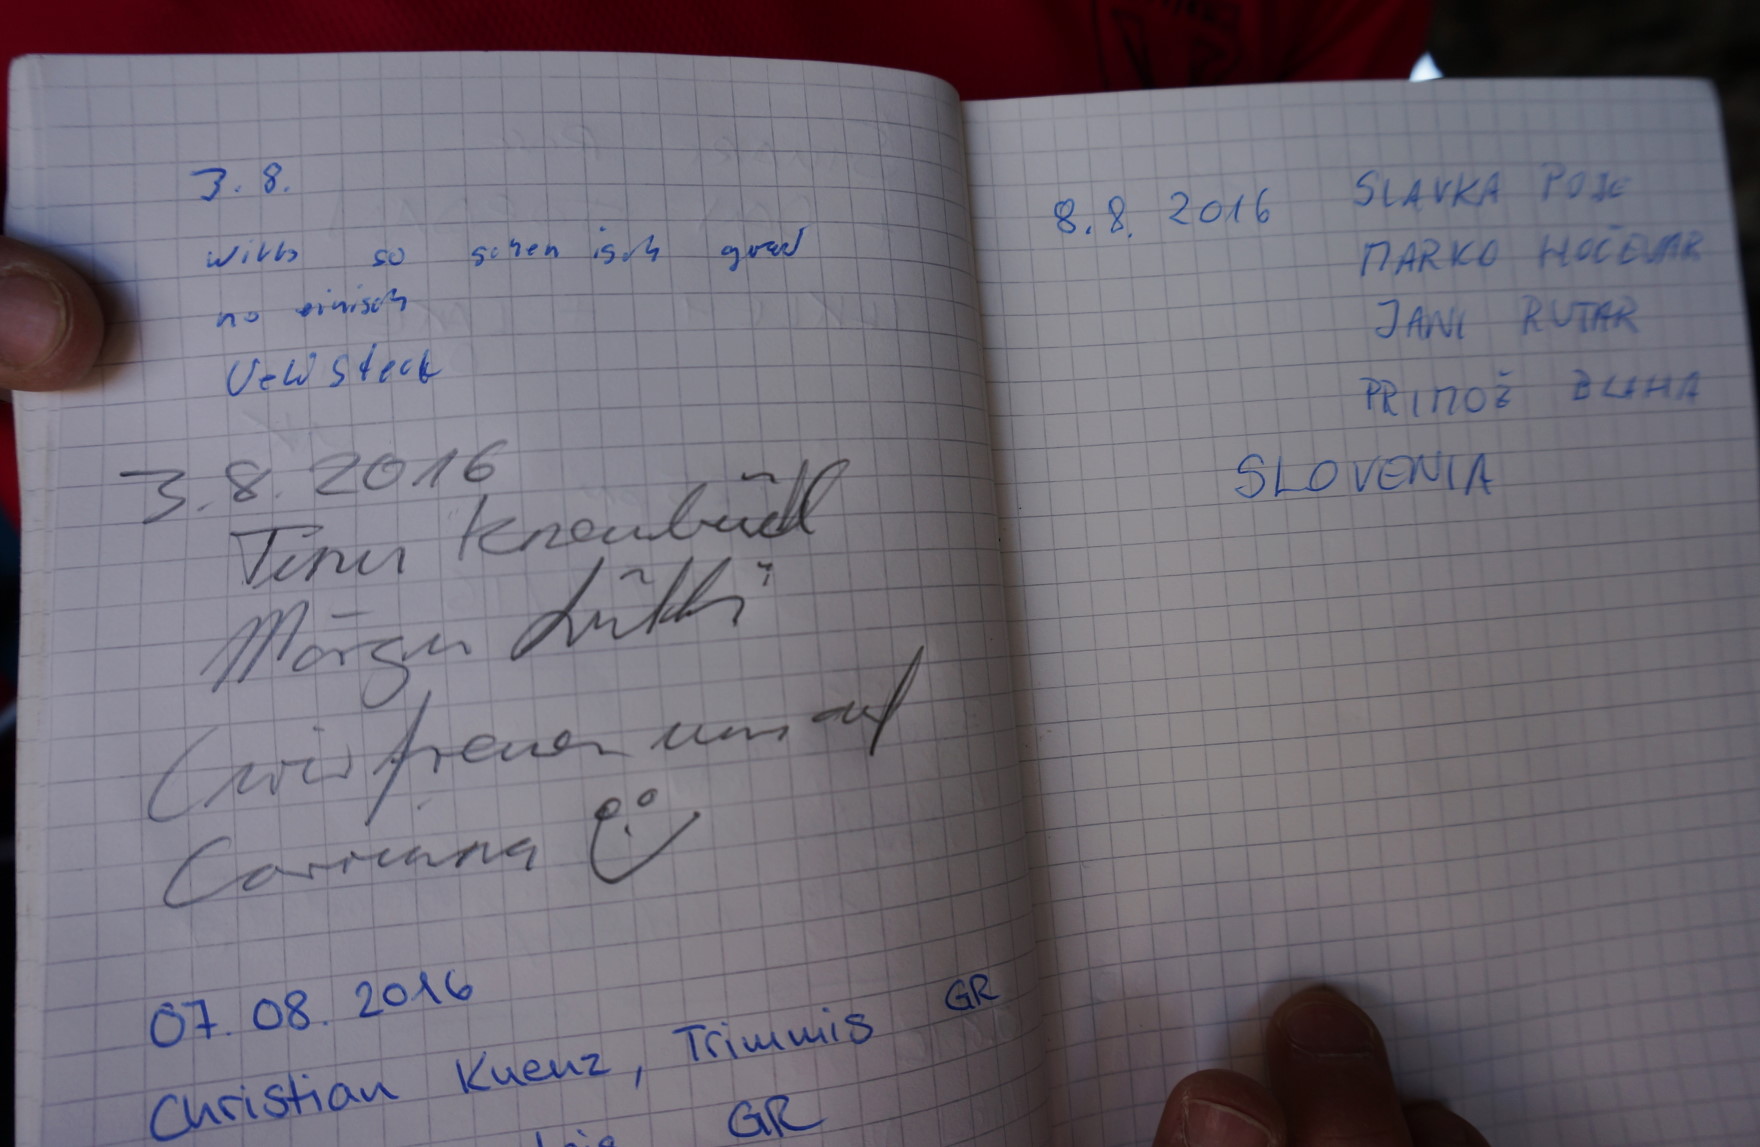 3.8.
wills so schen isch grad
no einisch
Ueli Steck
3.8.2016
Tinu
Märgu Lüthi
(wir freuen uns auf
07.08.2016
Christian Kuenz, Trimmis GR
GR
8.8. 2016 SLAVKA POJE
MARKO HOČEVAR
JANI RUTAR
PRIMOŽ
SLOVENIA